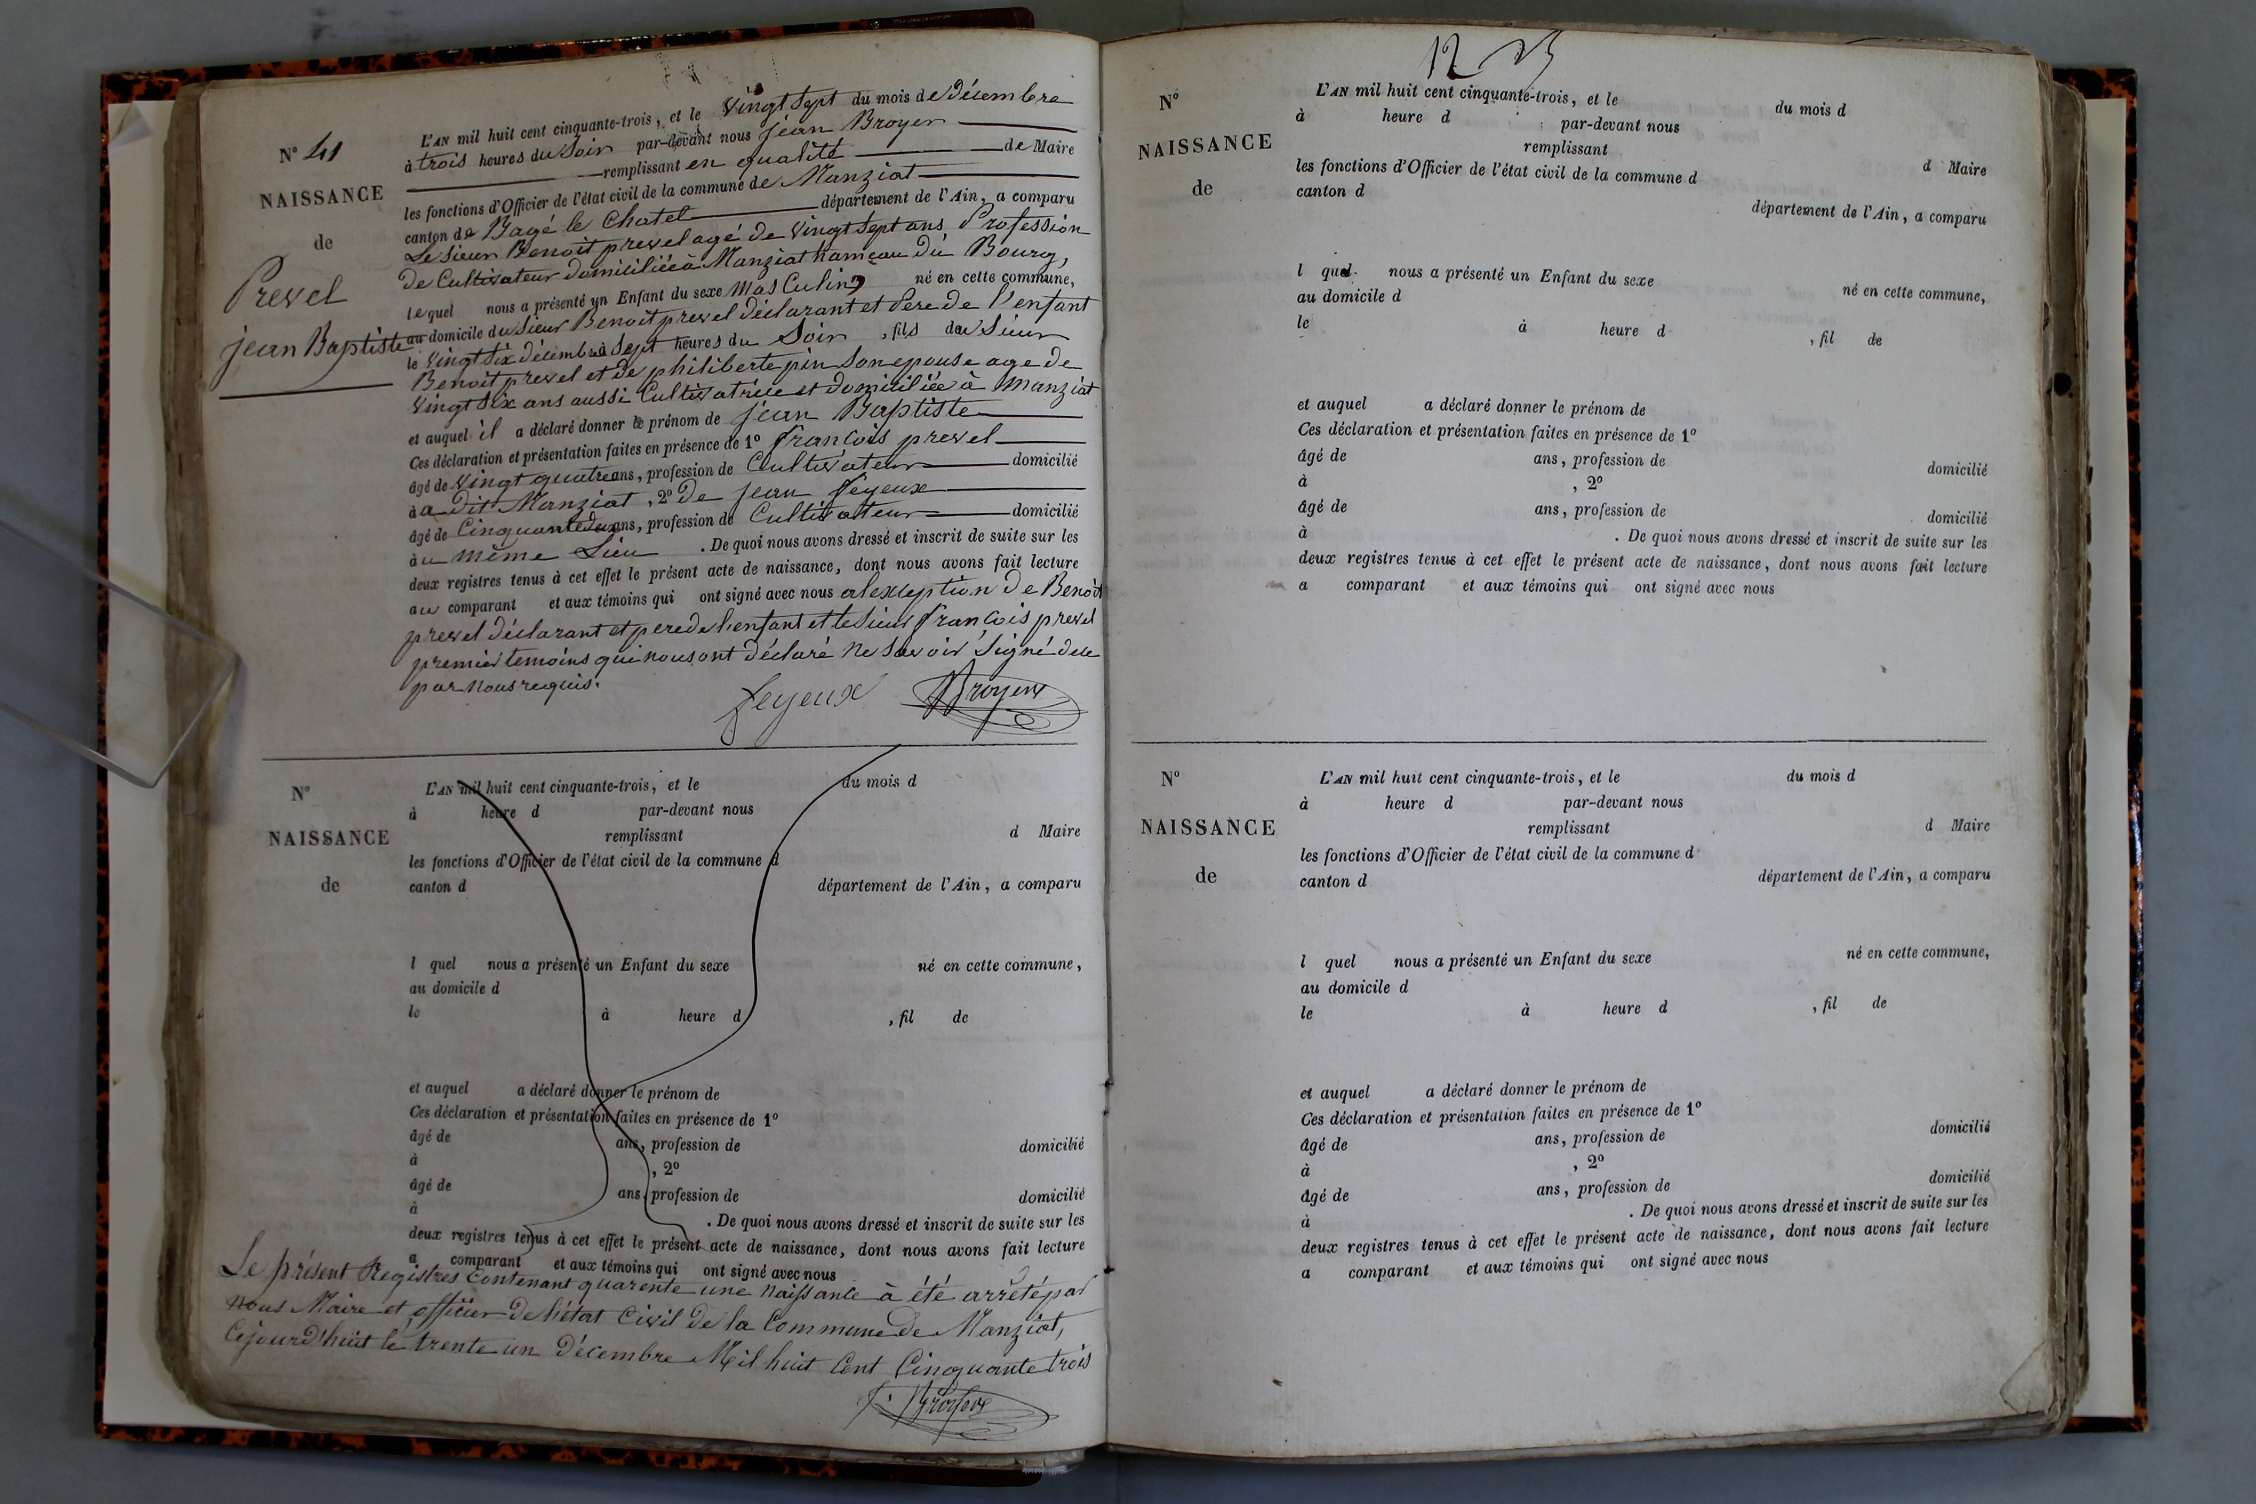 N° 41
NAISSANCE
de
Prevel
jean Baptiste
L'AN mil huit cent cinquante-trois, et le vingt sept du mois de décembre
à trois heures du Soir par-devant nous jean Broyer
remplissant en qualité de Maire
les fonctions d'Officier de l'état civil de la commune de Manziat
canton de Bagé le Chatel département de l'Ain, a comparu
Le Sieur Benoit prevel agé de vingt Sept ans Profession
de Cultivateur domiciliée à Manziat hameau du Bourg,
lequel nous a présenté un Enfant du sexe masculin, né en cette commune,
au domicile du Sieur Benoit prevel déclarant et Pere de l'enfant
le vingt Six décembre à Sept heures du Soir, fils du Sieur
Benoit prevel et de philiberte pin Son epouse age de
vingt Six ans aussi Cultivatrice et domiciliée à Manziat
et auquel il a déclaré donner le prénom de jean Baptiste
Ces déclaration et présentation faites en présence de 1° françois prevel
âgé de vingt quatre ans, profession de Cultivateur domicilié
à a dit Manziat, 2° De jean feyeux
âgé de Cinquante deux ans, profession de Cultivateur domicilié
au même Lieu. De quoi nous avons dressé et inscrit de suite sur les
deux registres tenus à cet effet le présent acte de naissance, dont nous avons fait lecture
au comparant et aux témoins qui ont signé avec nous alexception de Benoit
prevel déclarant et pere de l'enfant et le Sieur françois prevel
premier temoins qui nous ont déclaré ne Savoir Signé de ce
par nous requis.
feyeux Broyer
N°
NAISSANCE
de
L'AN mil huit cent cinquante-trois, et le du mois d
à heure d par-devant nous
remplissant d Maire
les fonctions d'Officier de l'état civil de la commune d
canton d département de l'Ain, a comparu
l quel nous a présenté un Enfant du sexe né en cette commune,
au domicile d
le à heure d , fil de
et auquel a déclaré donner le prénom de
Ces déclaration et présentation faites en présence de 1°
âgé de ans, profession de domicilié
à , 2°
âgé de ans, profession de domicilié
à . De quoi nous avons dressé et inscrit de suite sur les
deux registres tenus à cet effet le présent acte de naissance, dont nous avons fait lecture
a comparant et aux témoins qui ont signé avec nous
Le présent Registres Contenant quarente une Naissance à été arrêté par
Nous Maire et officier de l'état Civil de la Commune de Manziat,
Cejourd'huit le trente un Décembre Mil huit Cent Cinquante trois
J. Broyer
12
N°
NAISSANCE
de
L'AN mil huit cent cinquante-trois, et le du mois d
à heure d par-devant nous
remplissant d Maire
les fonctions d'Officier de l'état civil de la commune d
canton d département de l'Ain, a comparu
l quel nous a présenté un Enfant du sexe né en cette commune,
au domicile d
le à heure d , fil de
et auquel a déclaré donner le prénom de
Ces déclaration et présentation faites en présence de 1°
âgé de ans, profession de domicilié
à , 2°
âgé de ans, profession de domicilié
à . De quoi nous avons dressé et inscrit de suite sur les
deux registres tenus à cet effet le présent acte de naissance, dont nous avons fait lecture
a comparant et aux témoins qui ont signé avec nous
N°
NAISSANCE
de
L'AN mil huit cent cinquante-trois, et le du mois d
à heure d par-devant nous
remplissant d Maire
les fonctions d'Officier de l'état civil de la commune d
canton d département de l'Ain, a comparu
l quel nous a présenté un Enfant du sexe né en cette commune,
au domicile d
le à heure d , fil de
et auquel a déclaré donner le prénom de
Ces déclaration et présentation faites en présence de 1°
âgé de ans, profession de domicilié
à , 2°
âgé de ans, profession de domicilié
à . De quoi nous avons dressé et inscrit de suite sur les
deux registres tenus à cet effet le présent acte de naissance, dont nous avons fait lecture
a comparant et aux témoins qui ont signé avec nous